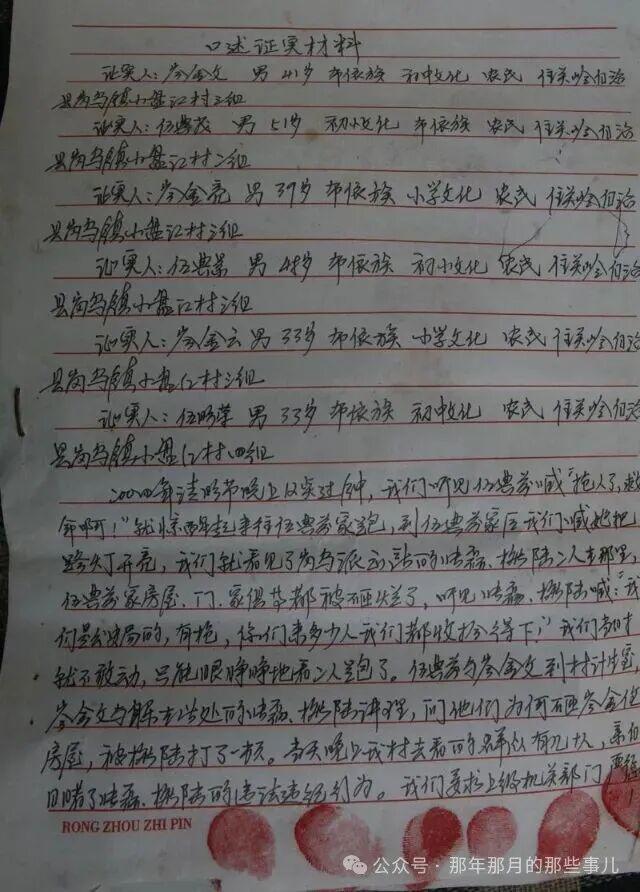 口述证实材料
证实人:岑金文 男 41岁 布依族 初中文化 农民 住关岭自治
县岗乌镇小盘江村三组
证实人:伍典茂 男 51岁 初小文化 布依族 农民 住关岭自治
县岗乌镇小盘江村二组
证实人:岑金亮 男 39岁 布依族 小学文化 农民 住关岭自治
县岗乌镇小盘江村三组
证实人:伍典 男 48岁 布依族 初小文化 农民 住关岭自治
县岗乌镇小盘江村三组
证实人:岑金云 男 33岁 布依族 小学文化 农民 住关岭自治
县岗乌镇小盘江村三组
证实人:伍 荣 男 33岁 布依族 初中文化 农民 住关岭自治
县岗乌镇小盘江村四组
二00四年清明节晚上 点 过钟,我们听见伍典芬喊“抢人了,救
命啊!”就惊醒起来往伍典芬家跑,到伍典芬家后我们喊她把
路灯开亮,我们就看见了岗乌派出 的 磊、 陆二人在那里,
伍典芬家房屋、门、家俱等都被砸烂了,听见 磊、 陆喊:“我
们是公安局的,有枪,你们来多少人我们都收拾得下;”我们当时
就不敢动,只能眼睁睁地看二人跑了。伍典芬与岑金文到村计生室,
岑金文与 处的 磊、 陆讲理,问他们为何砸岑金
房屋,被 陆打了一 。当天晚上我村去看的群众有几十人,亲自
目睹了 磊、 陆的违法违纪行为。我们要求上级机关部门严
RONG ZHOU ZHI PIN
公众号·那年那月的那些事儿